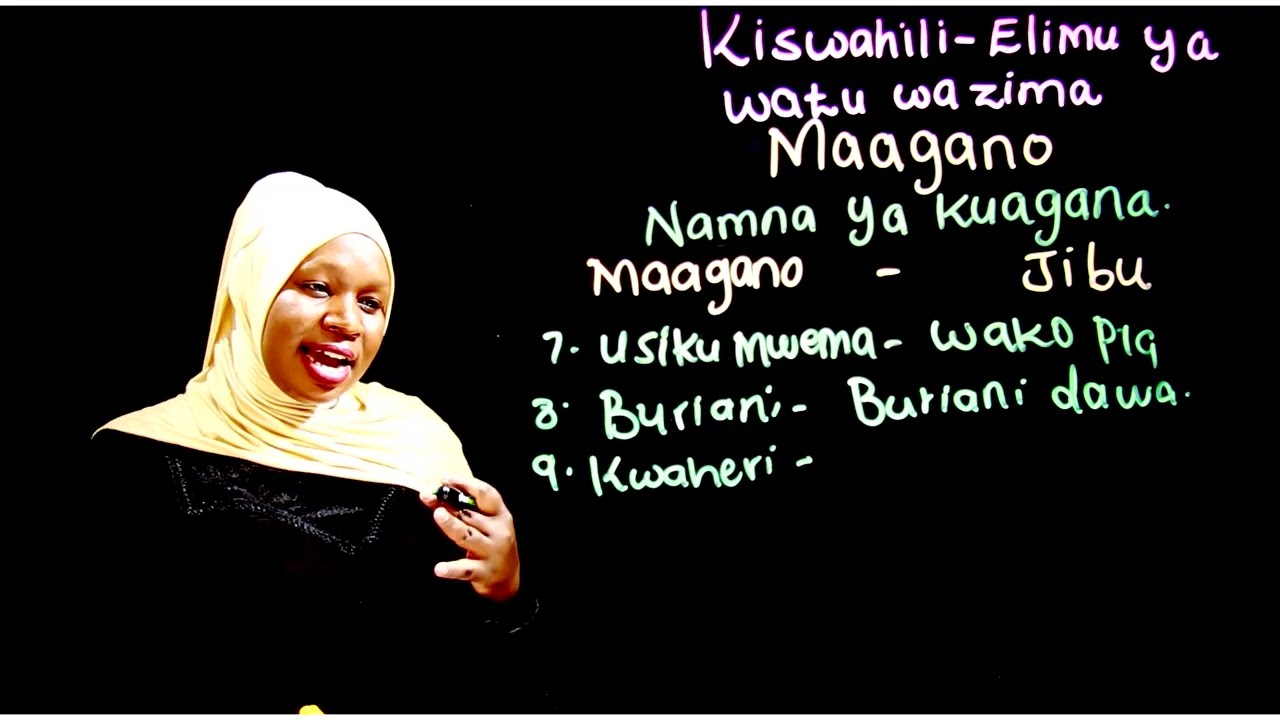 Kiswahili-Elimu ya
watu wazima
Maagano
Namna ya kuagana.
Maagano - Jibu
7. Usiku mwema - wako pia
8. Buriani - Buriani dawa.
9. Kwaheri -